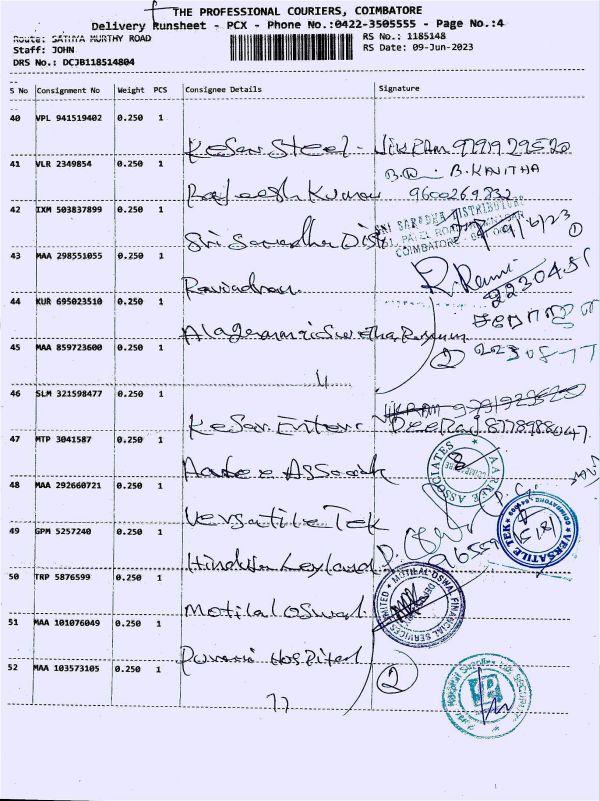 THE PROFESSIONAL COURIERS, COIMBATORE
Delivery Runsheet - PCX - Phone No.:0422-3505555 - Page No.:4
Route: SATHYA MURTHY ROAD
RS No.: 1185148
Staff: JOHN
RS Date: 09-Jun-2023
DRS No.: DCJB118514804
S No Consignment No Weight PCS Consignee Details Signature
40 VPL 941519402 0.250 1
Kesar Steel - VIKRAM 9791929520
41 VLR 2349854 0.250 1
B. KAVITHA
Rajeesh Kumar 9600269832
42 IXM 503837899 0.250 1
SRI SARADHA DISTRIBUTORS
9/6/23
COIMBATORE
Sri Saradha Dist
43 MAA 298551055 0.250 1
2230451
44 KUR 695023510 0.250 1
45 MAA 859723600 0.250 1
2
46 SLM 321598477 0.250 1
Kesar Enter DEERAJ 8778988047
47 MTP 3041587 0.250 1
AARKEE ASSOCIATES
48 MAA 292660721 0.250 1
Versatile Tek
VERSATILE TEK
49 GPM 5257240 0.250 1
Hinduja Leyland
50 TRP 5876599 0.250 1
MOTILAL OSWAL FINANCIAL SERVICES LIMITED
Motilal Oswal
51 MAA 101076049 0.250 1
Hospital
52 MAA 103573105 0.250 1
2